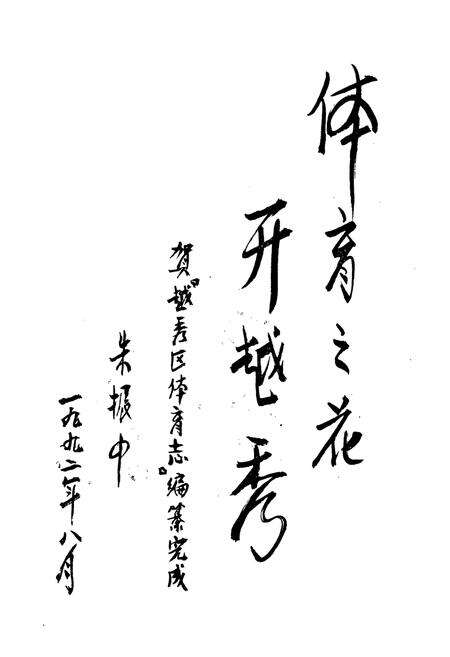 体育之花
开越秀
贺《越秀区体育志》编纂完成
朱振中
一九九二年八月